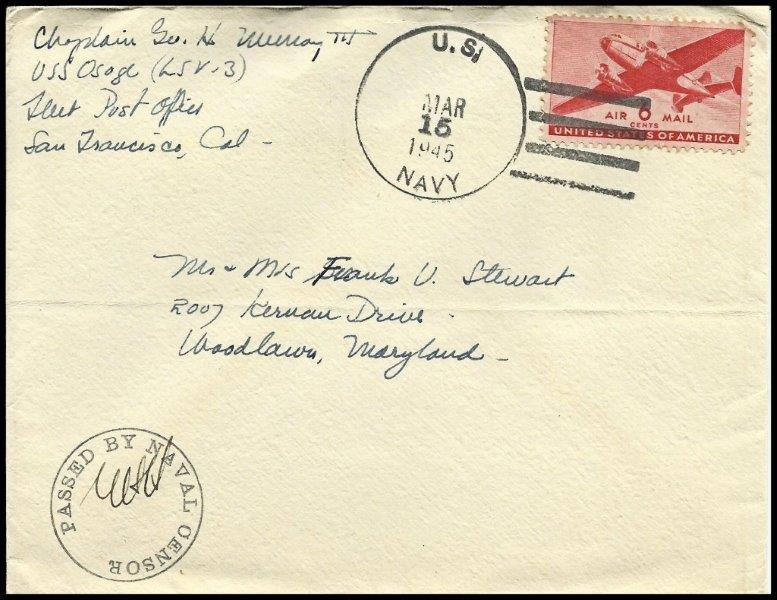 Chaplain Geo. H. Murray, III
USS Osage (LSV-3)
Fleet Post Office
San Francisco, Cal -
U.S.
MAR
15
1945
NAVY
AIR 6 MAIL
CENTS
UNITED STATES OF AMERICA
Mr & Mrs Frank V. Stewart
2007 Kernan Drive.
Woodlawn, Maryland -
PASSED BY NAVAL CENSOR